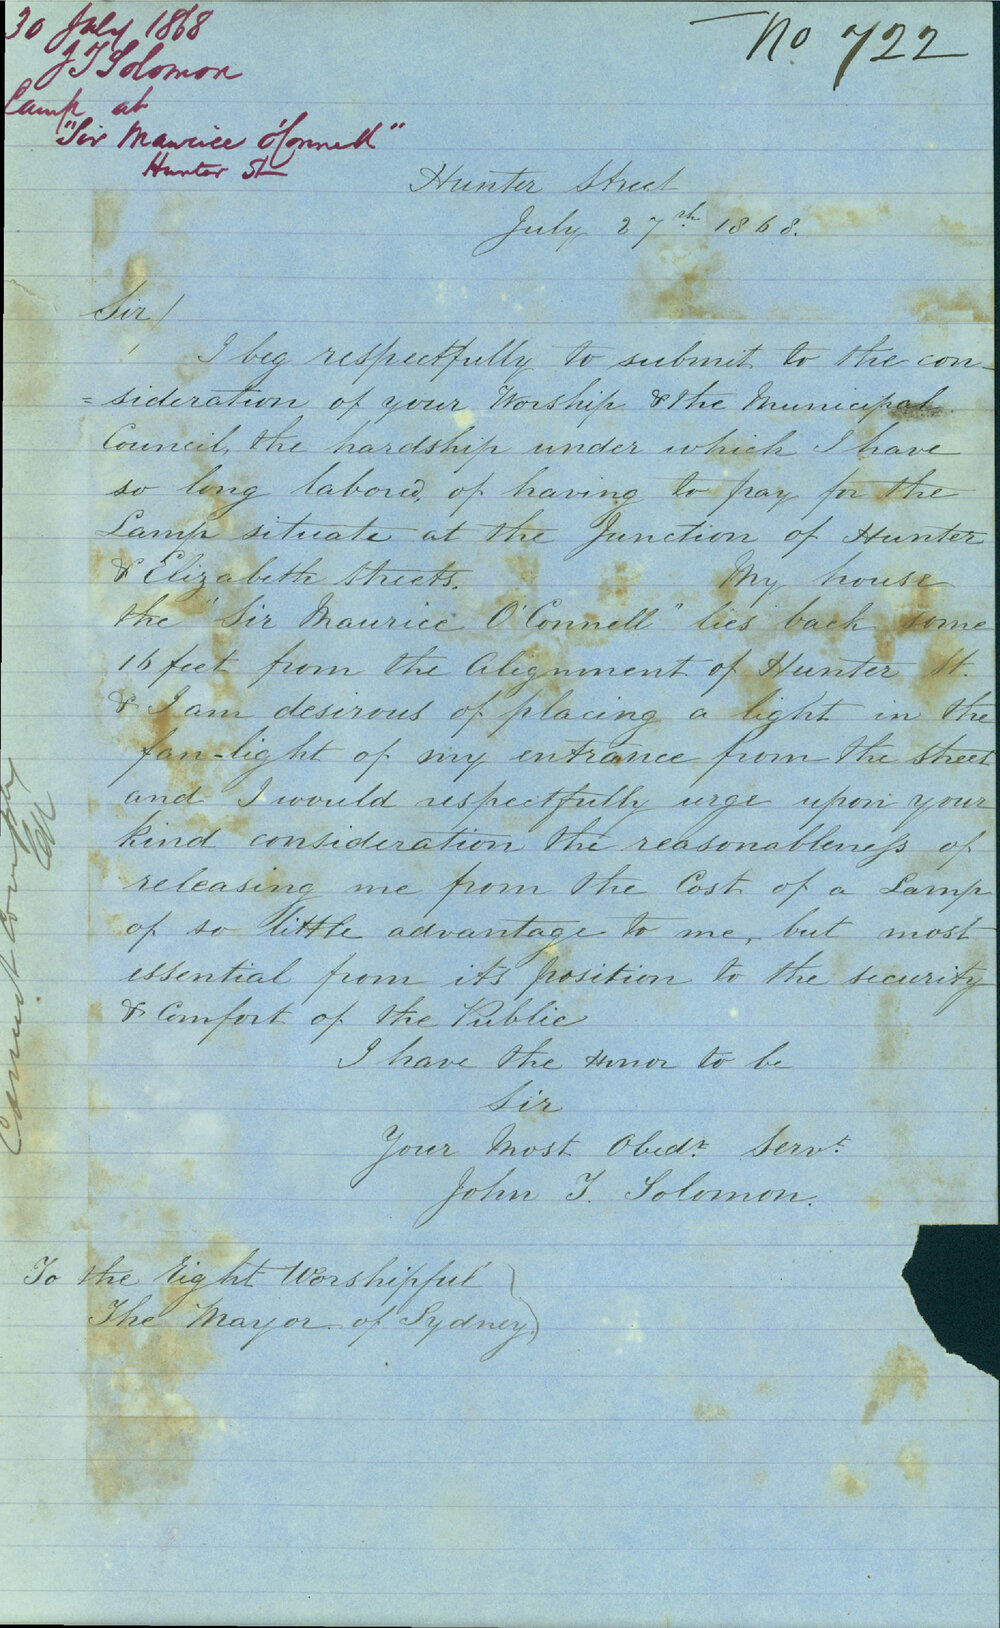 30 July 1868
J T Solomon
Lamp at
"Sir Maurice O'Connell"
Hunter St
No 722
Hunter Street
July 27th 1868.
Sir/
I beg respectfully to submit to the con-
=sideration of your Worship & the Municipal
Council, the hardship under which I have
so long labored, of having to pay for the
Lamp situate at the Junction of Hunter
& Elizabeth Streets. My house
the "Sir Maurice O'Connell" lies back some
16 feet from the alignment of Hunter St.
& I am desirous of placing a light in the
fan-light of my entrance from the street
and I would respectfully urge upon your
kind consideration the reasonableness of
releasing me from the Cost of a Lamp
of so little advantage to me, but most
essential from its position to the security
& Comfort of the Public
I have the Honor to be
Sir
Your Most Obedt. Servt.
John T. Solomon.
To the Right Worshipful
The Mayor of Sydney